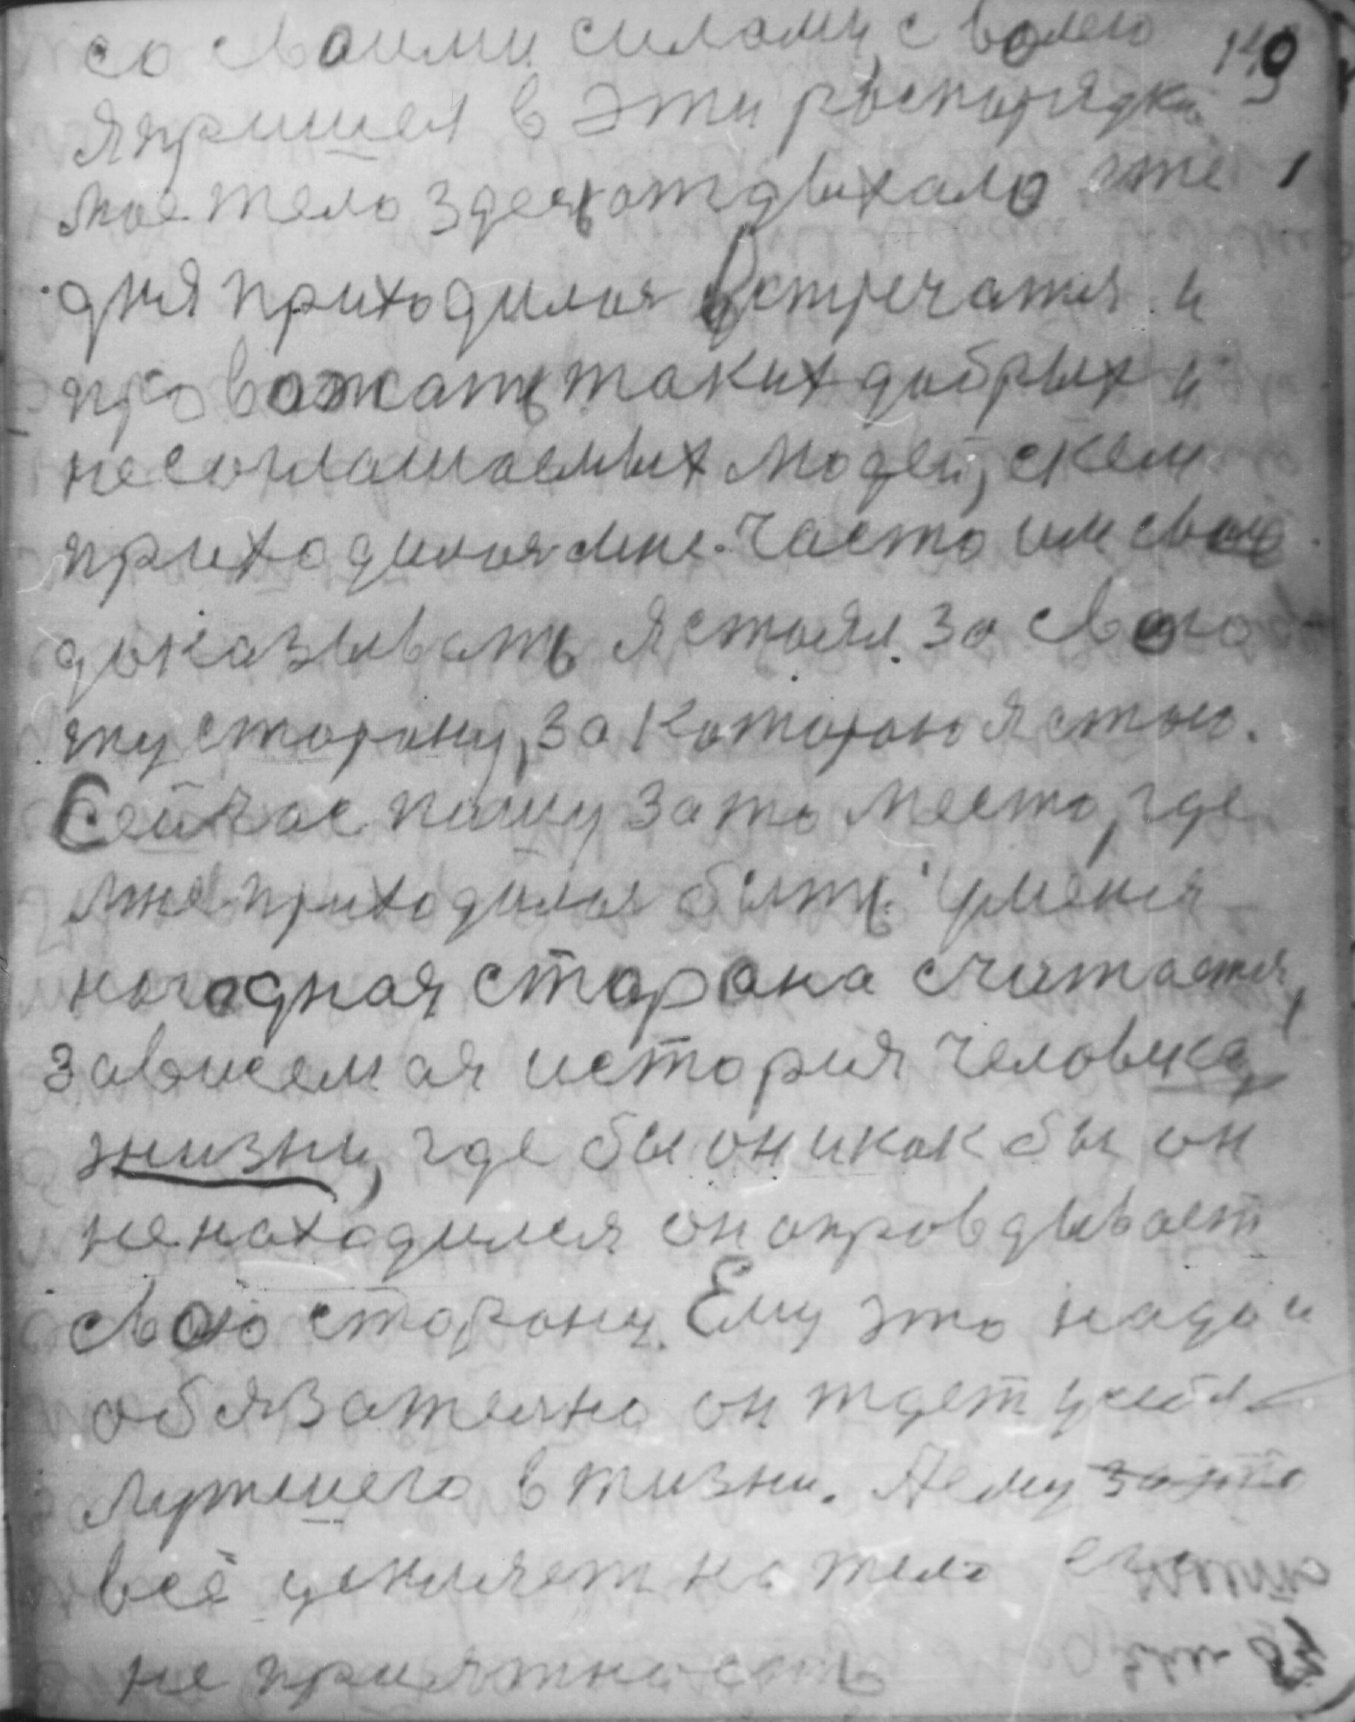 со своими силами, с волею 149
я пришел в эти распорядки
мое тело здесь отдыхало эти
дня приходился встречатся и
провожать таких добрых и
несоглашаемых людей, с кем
приходилоя мне. Часто им свое
доказывать я стоял за свою
ту сторону, за которою я стою.
Сейчас пишу за то место, где
мне приходилоя быть у меня
ногодная сторона считается,
зависемая история человика,
жизни, где бы он и как бы он
не находился он оправдывает
свою сторону. Ему это надо и
обязательно он ждет у себя
лутшего в жизни. А ему за это
всё цепляет на тело его
не приятность